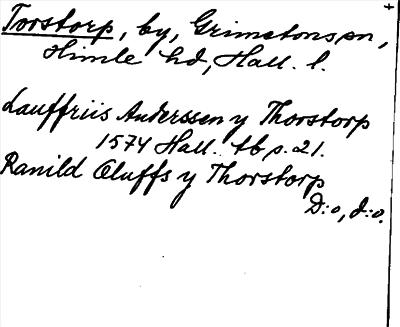 Torstorp, by, Grimetons sn,
Himle hd, Hall. l.
Lauffriis Anderssen y Thorstorp
1574 Hall. tb s. 21.
Ranild Oluffs y Thorstorp
D:o, d:o.